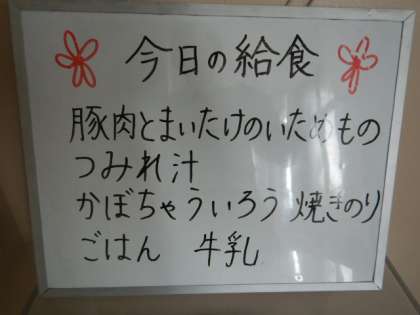 今日の給食
豚肉とまいたけのいためもの
つみれ汁
かぼちゃういろう 焼きのり
ごはん 牛乳